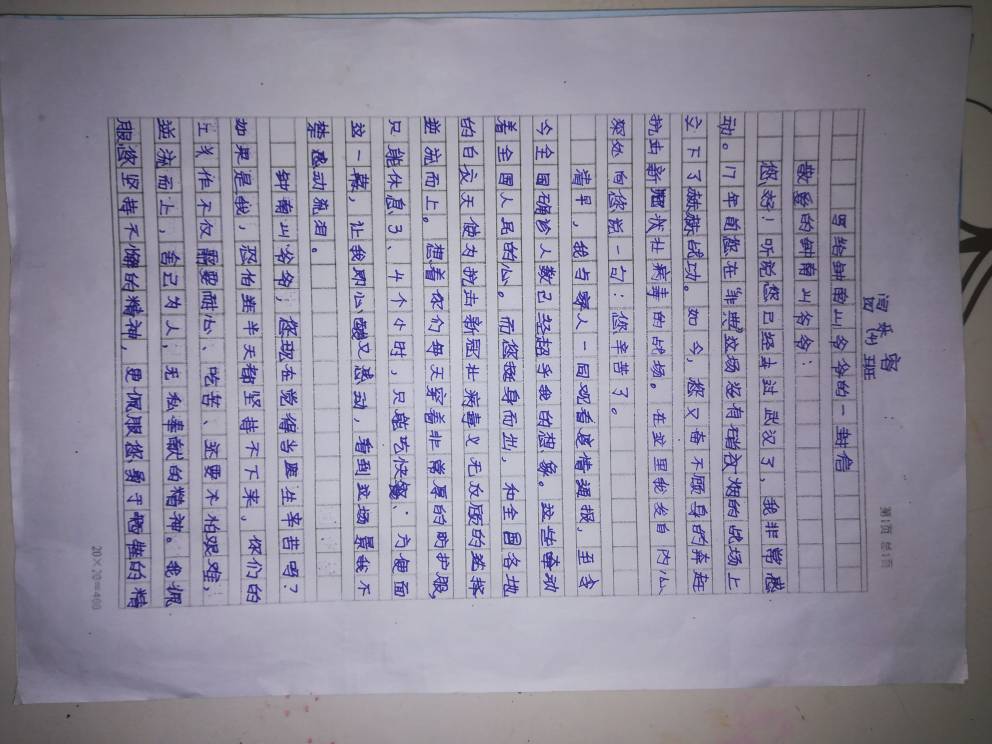 第1页 总1页
四（4）班
写给钟南山爷爷的一封信
敬爱的钟南山爷爷：
您好！听说您已经去过武汉了，我非常感
动。17年前您在“非典”这场没有硝放烟的战场上
立下了赫赫战功。如今，您又奋不顾身的奔赴
抗击新冠状壮病毒的战场。在这里我发自内心
深处向您说一句：您辛苦了。
清早，我与家人一同观看疫情通报，至今
今全国确诊人数已经超乎我的想象。这些牵动
着全国人民的心。而您挺身而出，和全国各地
的白衣天使为抗击新冠壮病毒义无反顾的选择
逆流而上。想着你们每天穿着非常厚的防护服，
只能休息3、4个小时，只能吃快餐、方便面
这一幕，让我即心酸又感动，看到这场景我不
禁感动流泪。
钟南山爷爷，您现在觉得当医生辛苦吗？
如果是我，恐怕连半天都坚持不下来，你们的
工作不仅需要耐心、吃苦、还要不怕艰难，
逆流而上，舍己为人，无私奉献的精神。我佩
服您坚持不懈的精神，更佩服您勇于牺牲的精
20×20=400